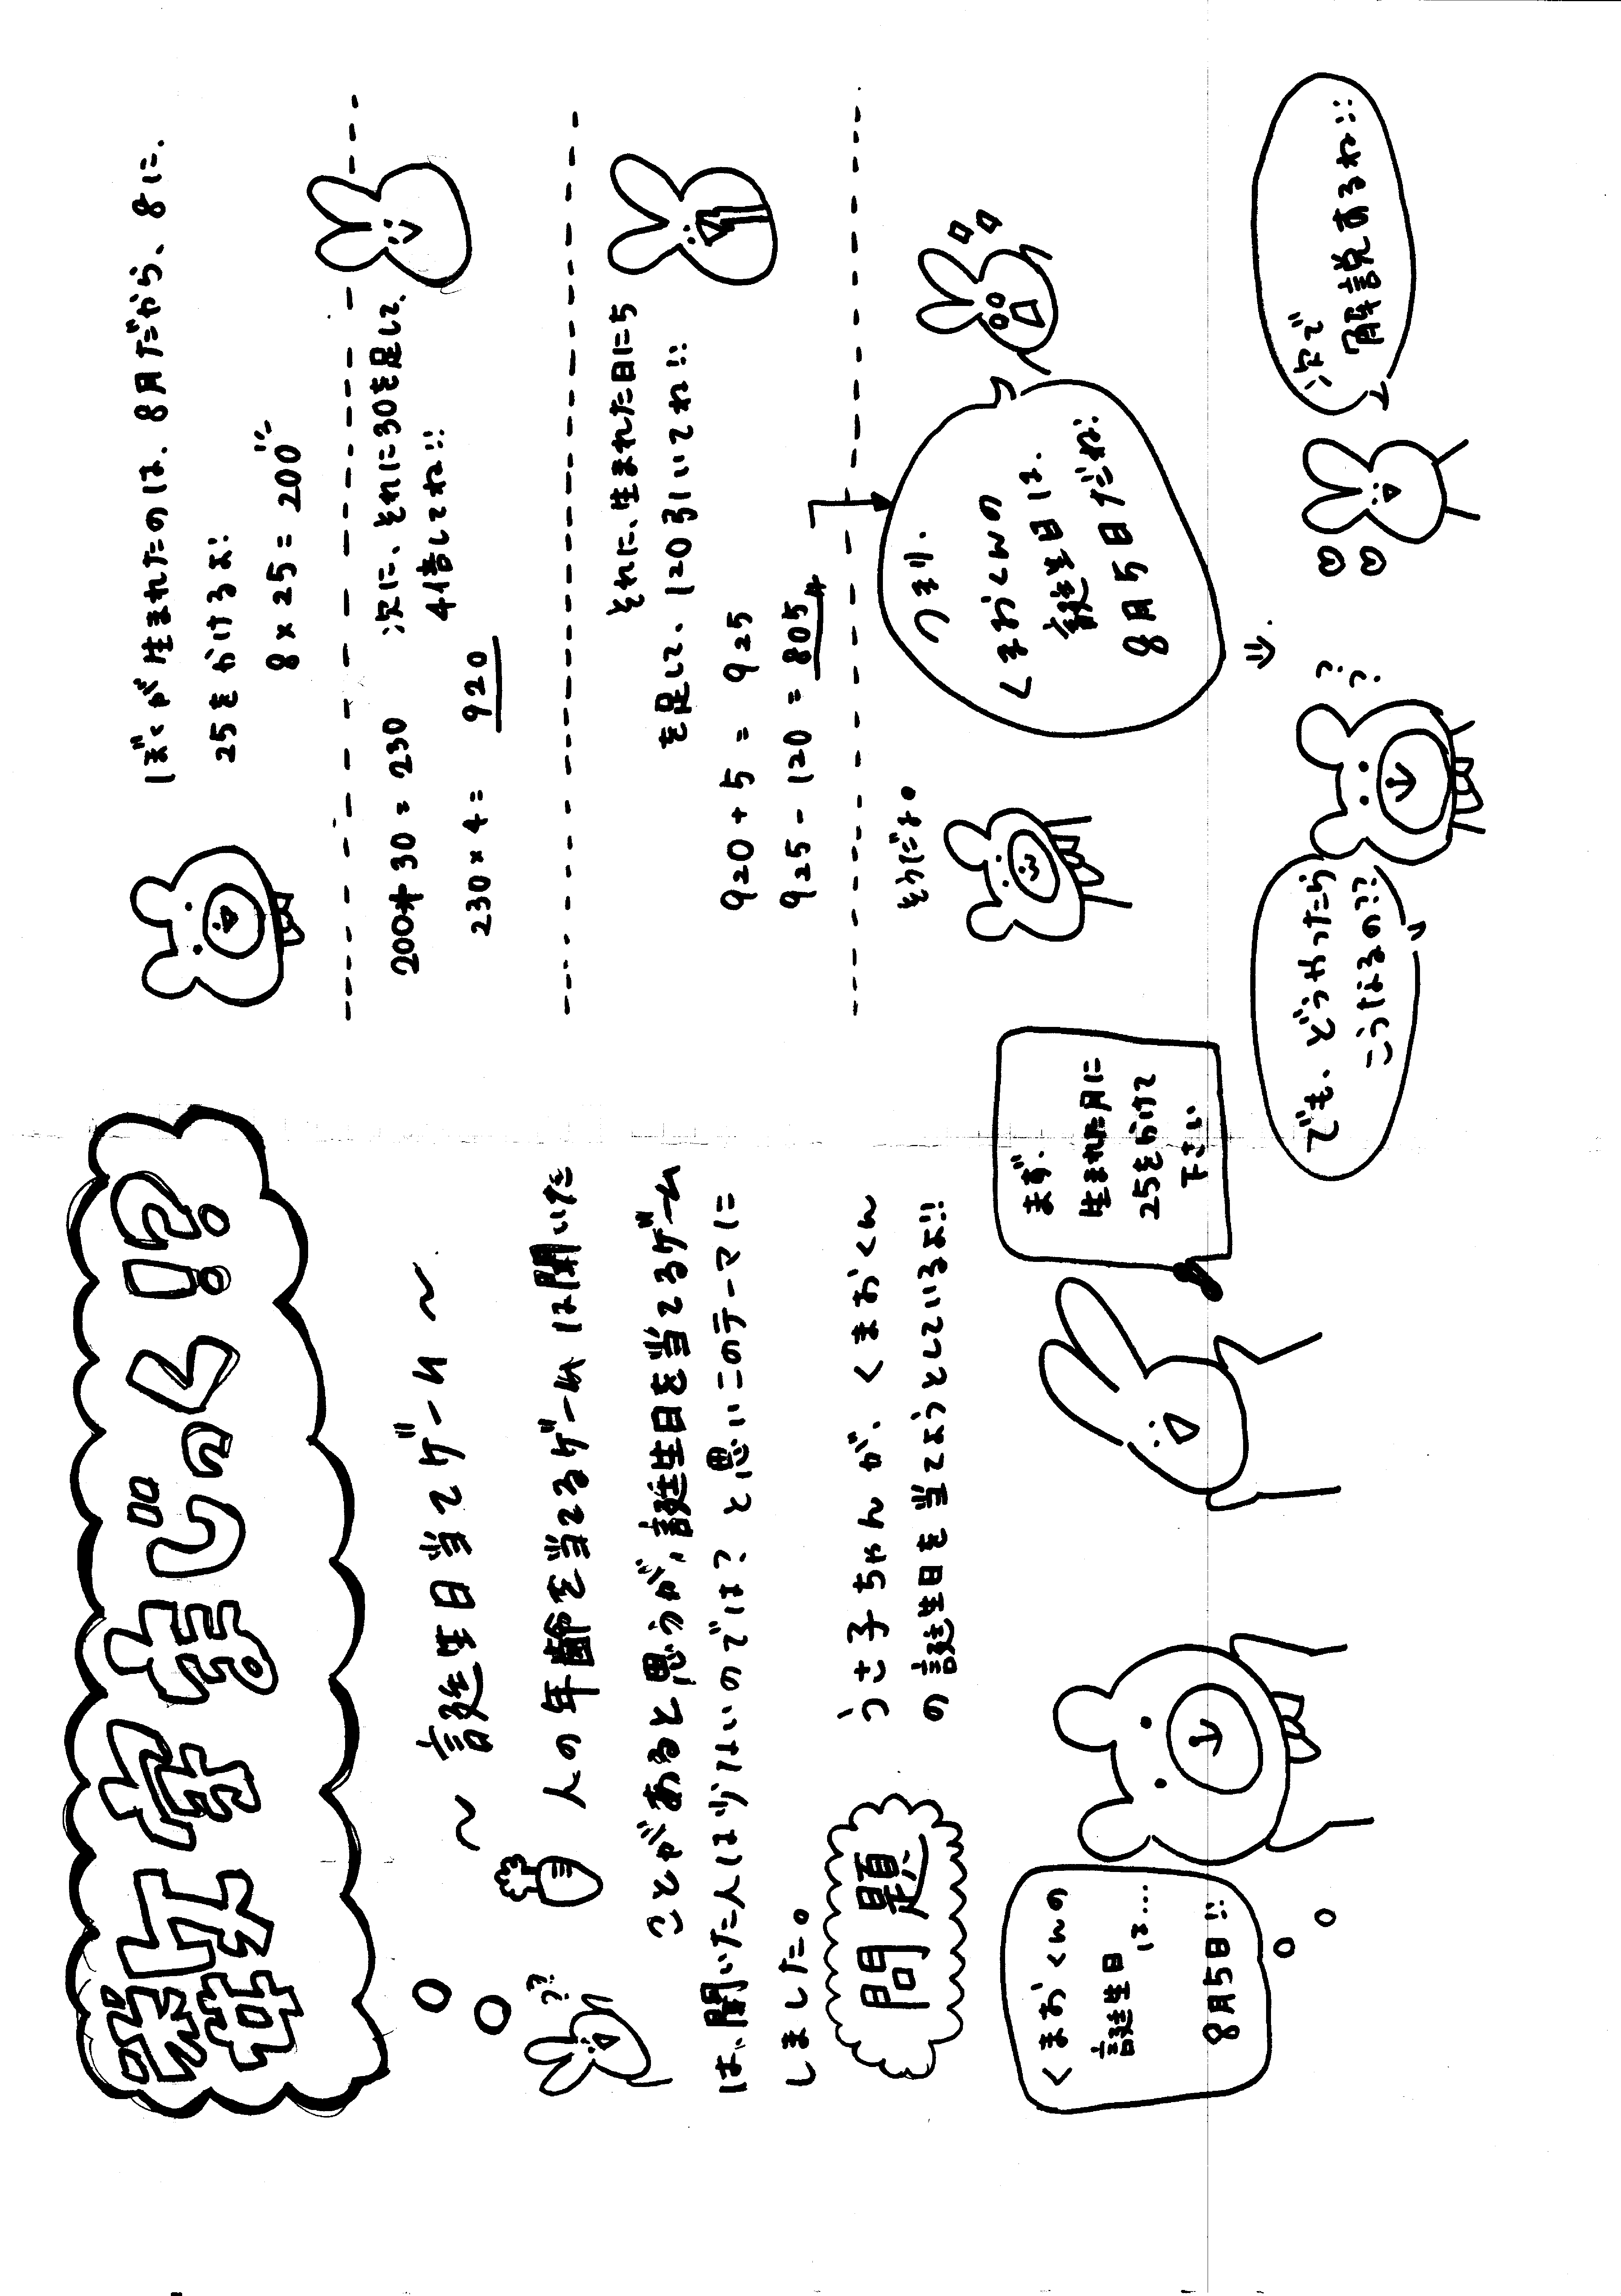 数学まじっく!?
~ 誕生日当てゲーム ~
人の年齢を当てるゲームは聞いた
ことがあると思うが、誕生日を当てるゲーム
は、聞いた人は少ないのでは?と思いこのテーマに
しました。
??
問題
うさ子ちゃんが、くまおくん
の誕生日を当てようとしているよ!!
くまおくんの
誕生日
は...
8月5日!!
まず、
生まれた月に
25をかけて
下さい
ぼくが生まれたのは、8月だから、8に、
25をかけるよ!
8×25=200
次に、それに30を足して、
4倍してね!!
200+30=230
230×4=920
それに、生まれた日に5
を足して、120引いてね!!
920+5=925
925-120=805
そうだよ。
つまり、
くまおくんの
誕生日は、
8月5日だね!
でも、どうやったら
こうなるの??
??
次で
解説するね!!